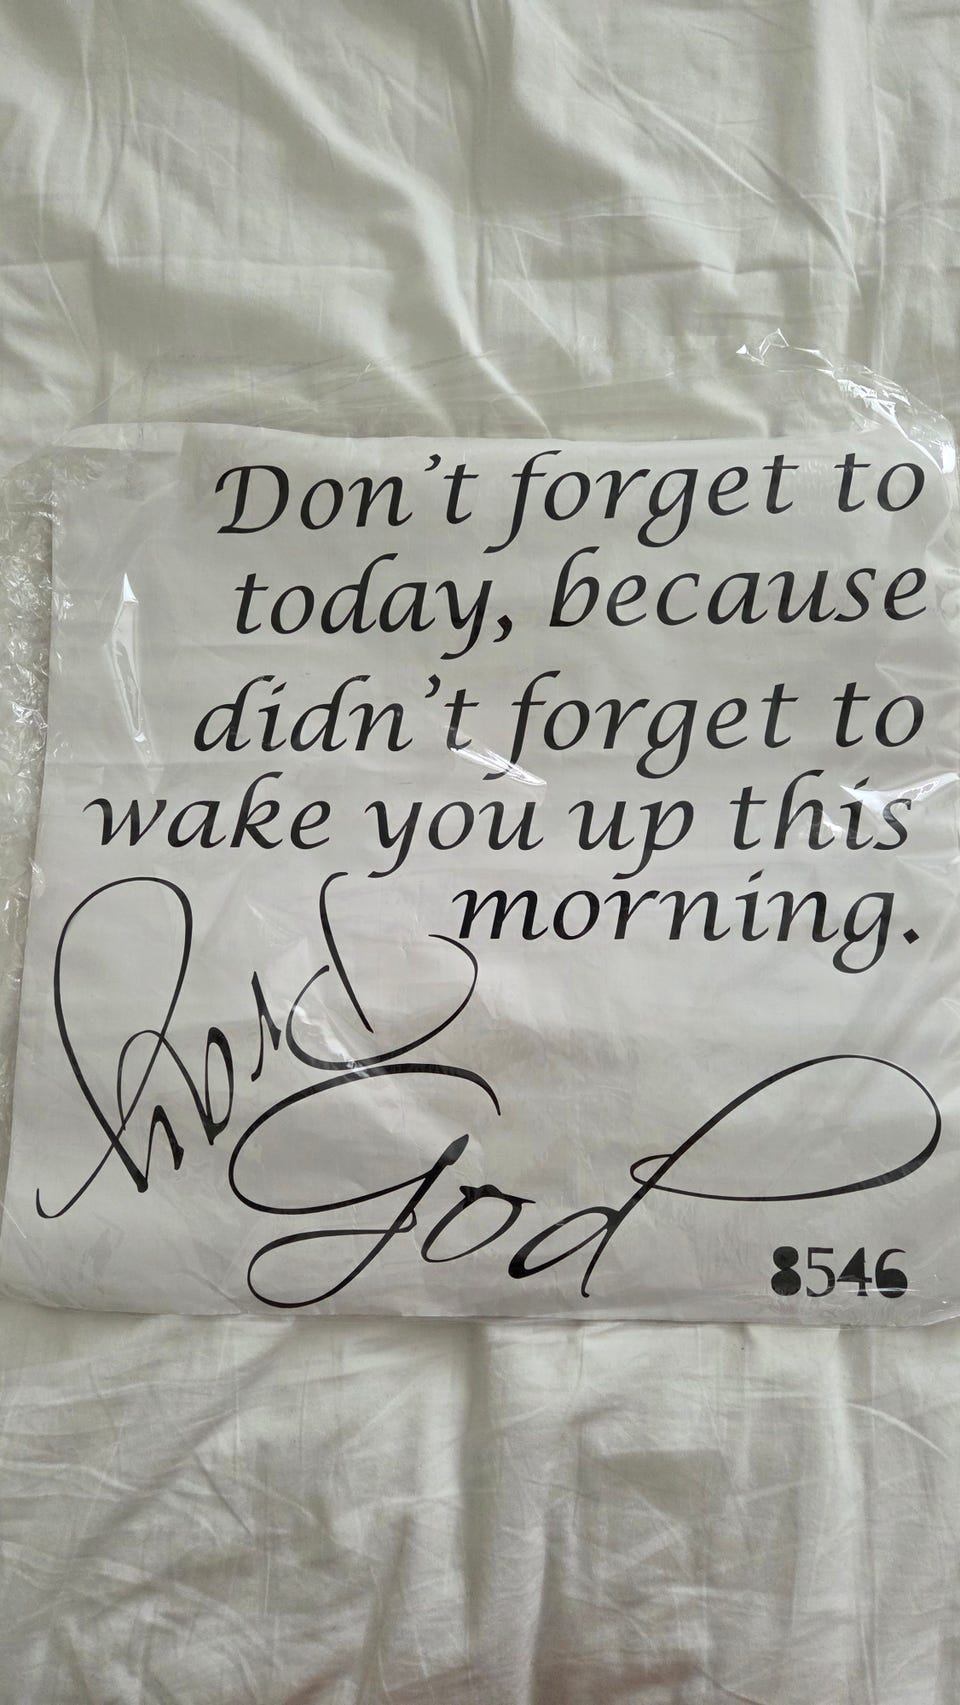 Don't forget to
today, because
didn't forget to
wake you up this
morning.
Pray
God
8546